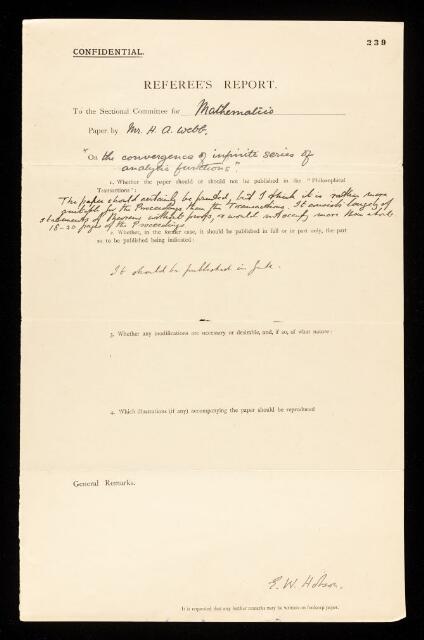 239
CONFIDENTIAL.
REFEREE'S REPORT.
To the Sectional Committee for Mathematics
Paper by Mr. H. A. Webb.
"On the convergence of infinite series of
analytic functions".
1. Whether the paper should or should not be published in the "Philosophical
Transactions":
The paper should certainly be printed, but I think it is rather more
suitable for the Proceedings than the Transactions. It consists largely of
statements of theorems without proofs, & would not occupy more than about
15-20 pages of the Proceedings.
2. Whether, in the former case, it should be published in full or in part only, the part
so to be published being indicated:
It should be published in full.
3. Whether any modifications are necessary or desirable, and, if so, of what nature:
4. Which illustrations (if any) accompanying the paper should be reproduced
General Remarks.
E. W. Hobson.
It is requested that any further remarks may be written on foolscap paper.